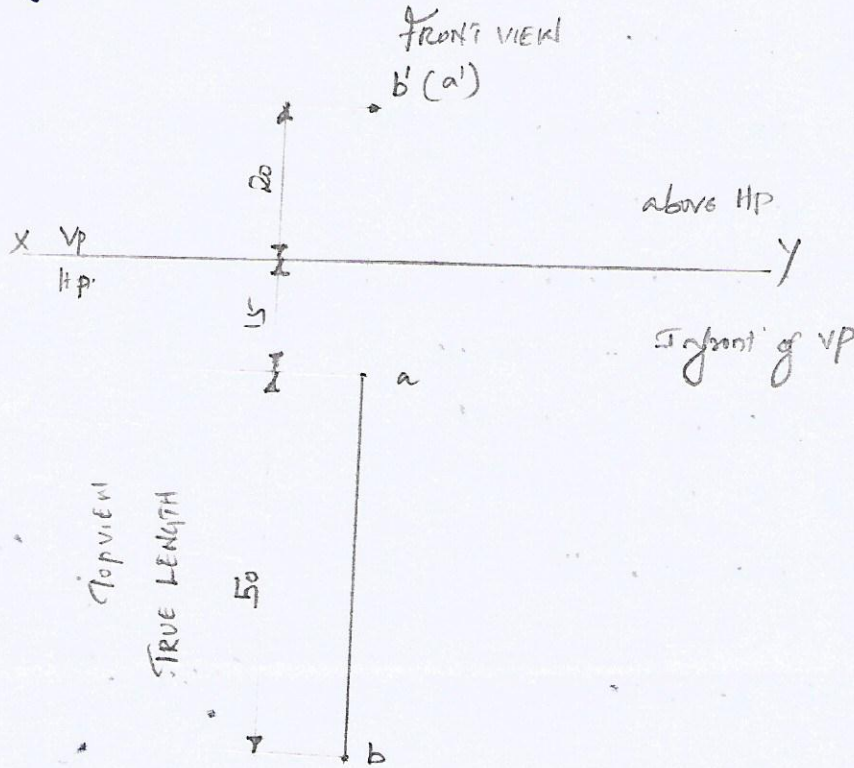 FRONT VIEW
b' (a')
20
above HP
X VP Y
HP.
15
Infront of VP
a
TOPVIEW
TRUE LENGTH
50
b